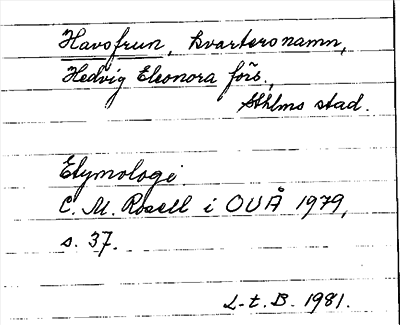 Havsfrun, kvartersnamn,
Hedvig Eleonora förs.,
Sthlms stad.
Etymologi
C. M. Rosell i OUÅ 1979,
s. 37.
L-t. B. 1981.